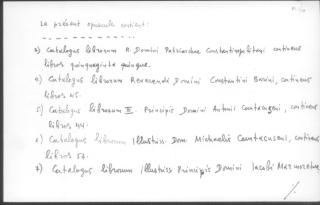 Le présent opuscule contient:
3) Catalogus librorum R. Domini Patriarchae Constantinopolitani continens
libros quinquaginta quinque.
4) Catalogus librorum Reverendi Domini Constantini Barini, continens
libros 45.
5) Catalogus librorum Principis Domini Antonii Cantacuzeni, continens
libros 44.
6) Catalogus librorum Illustriss. Dom. Michaelis Cantacuzeni, continens
libros 57.
7) Catalogus librorum Illustriss Principis Domini Jacobi